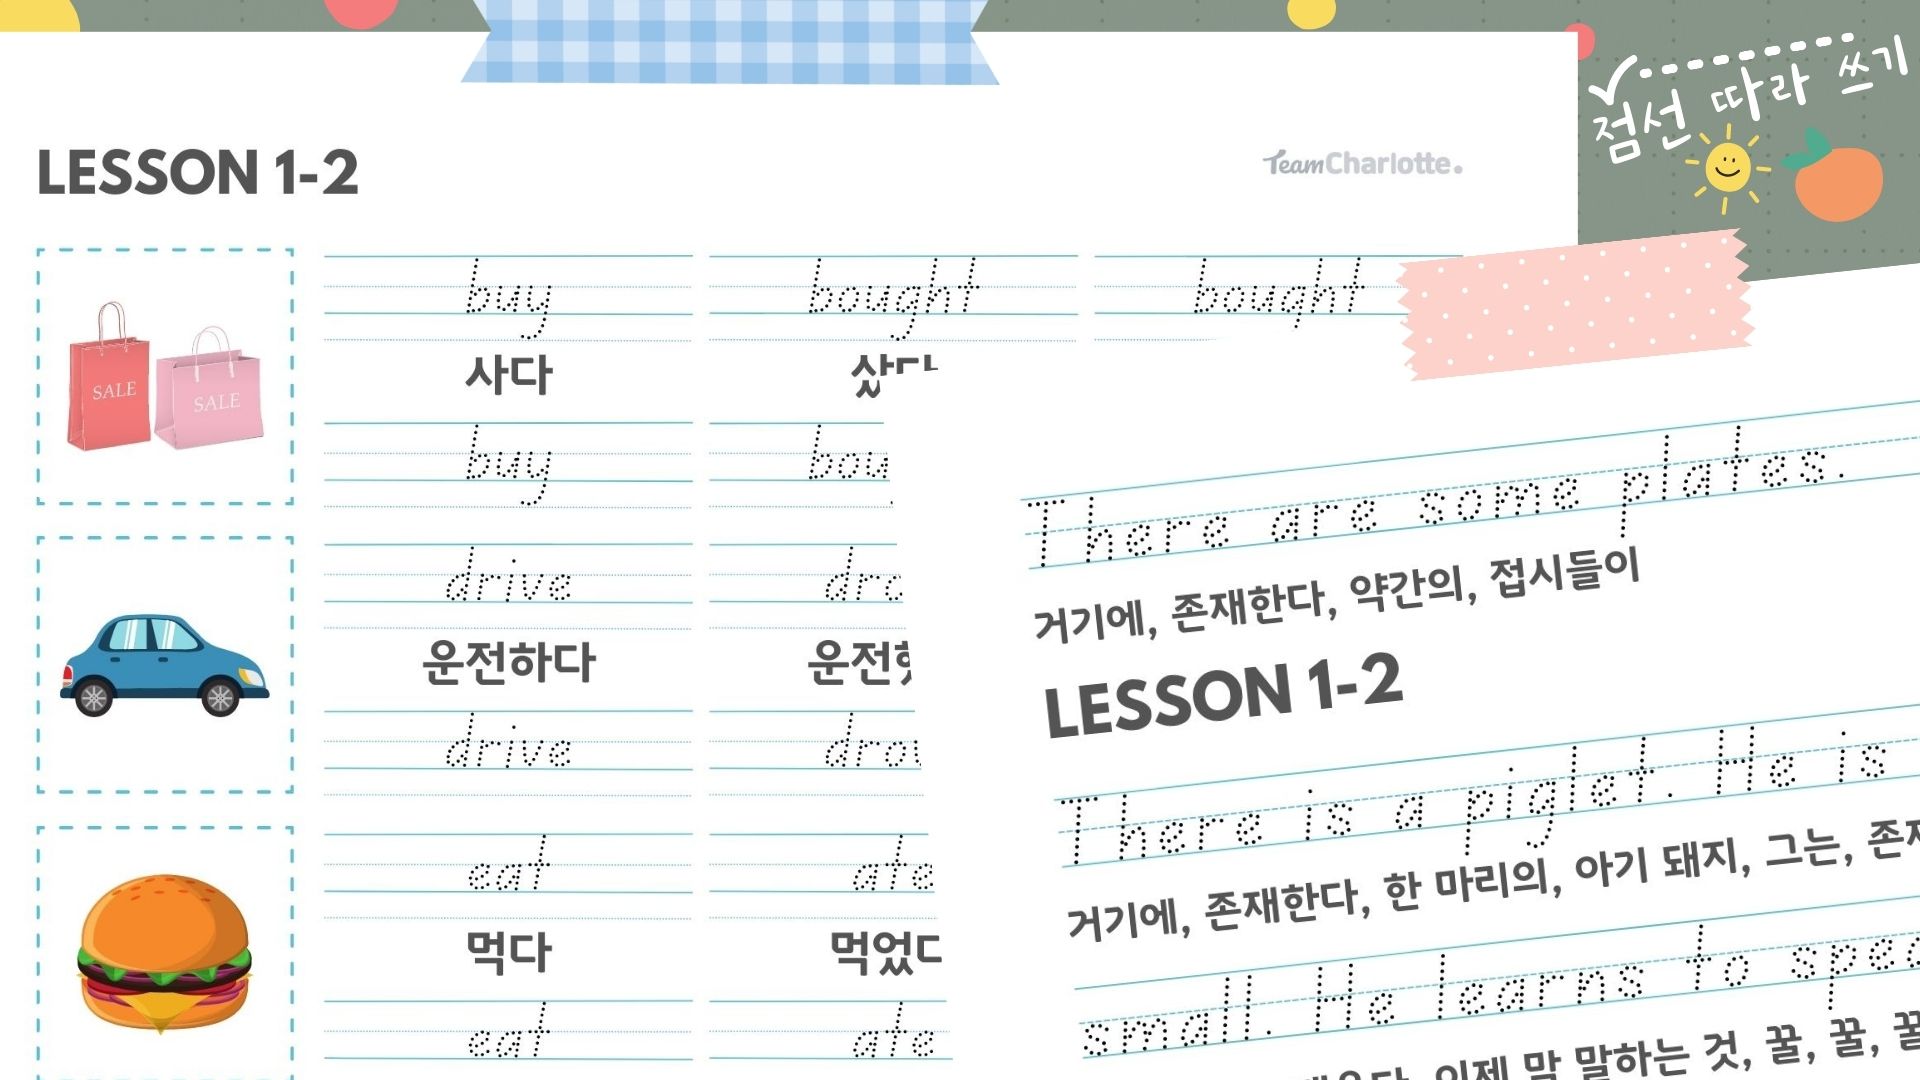 점선 따라 쓰기
LESSON 1-2
TeamCharlotte.
SALE SALE
buy bought bought
사다 샀다
buy bou
drive
운전하다 운전
drive
eat ate
먹다 먹었다
eat ate
There are some plates.
거기에, 존재한다, 약간의, 접시들이
LESSON 1-2
There is a piglet. He is
거기에, 존재한다, 한 마리의, 아기 돼지, 그는,
small. He learns to
이제 막 말하는 것, 꿀, 꿀,